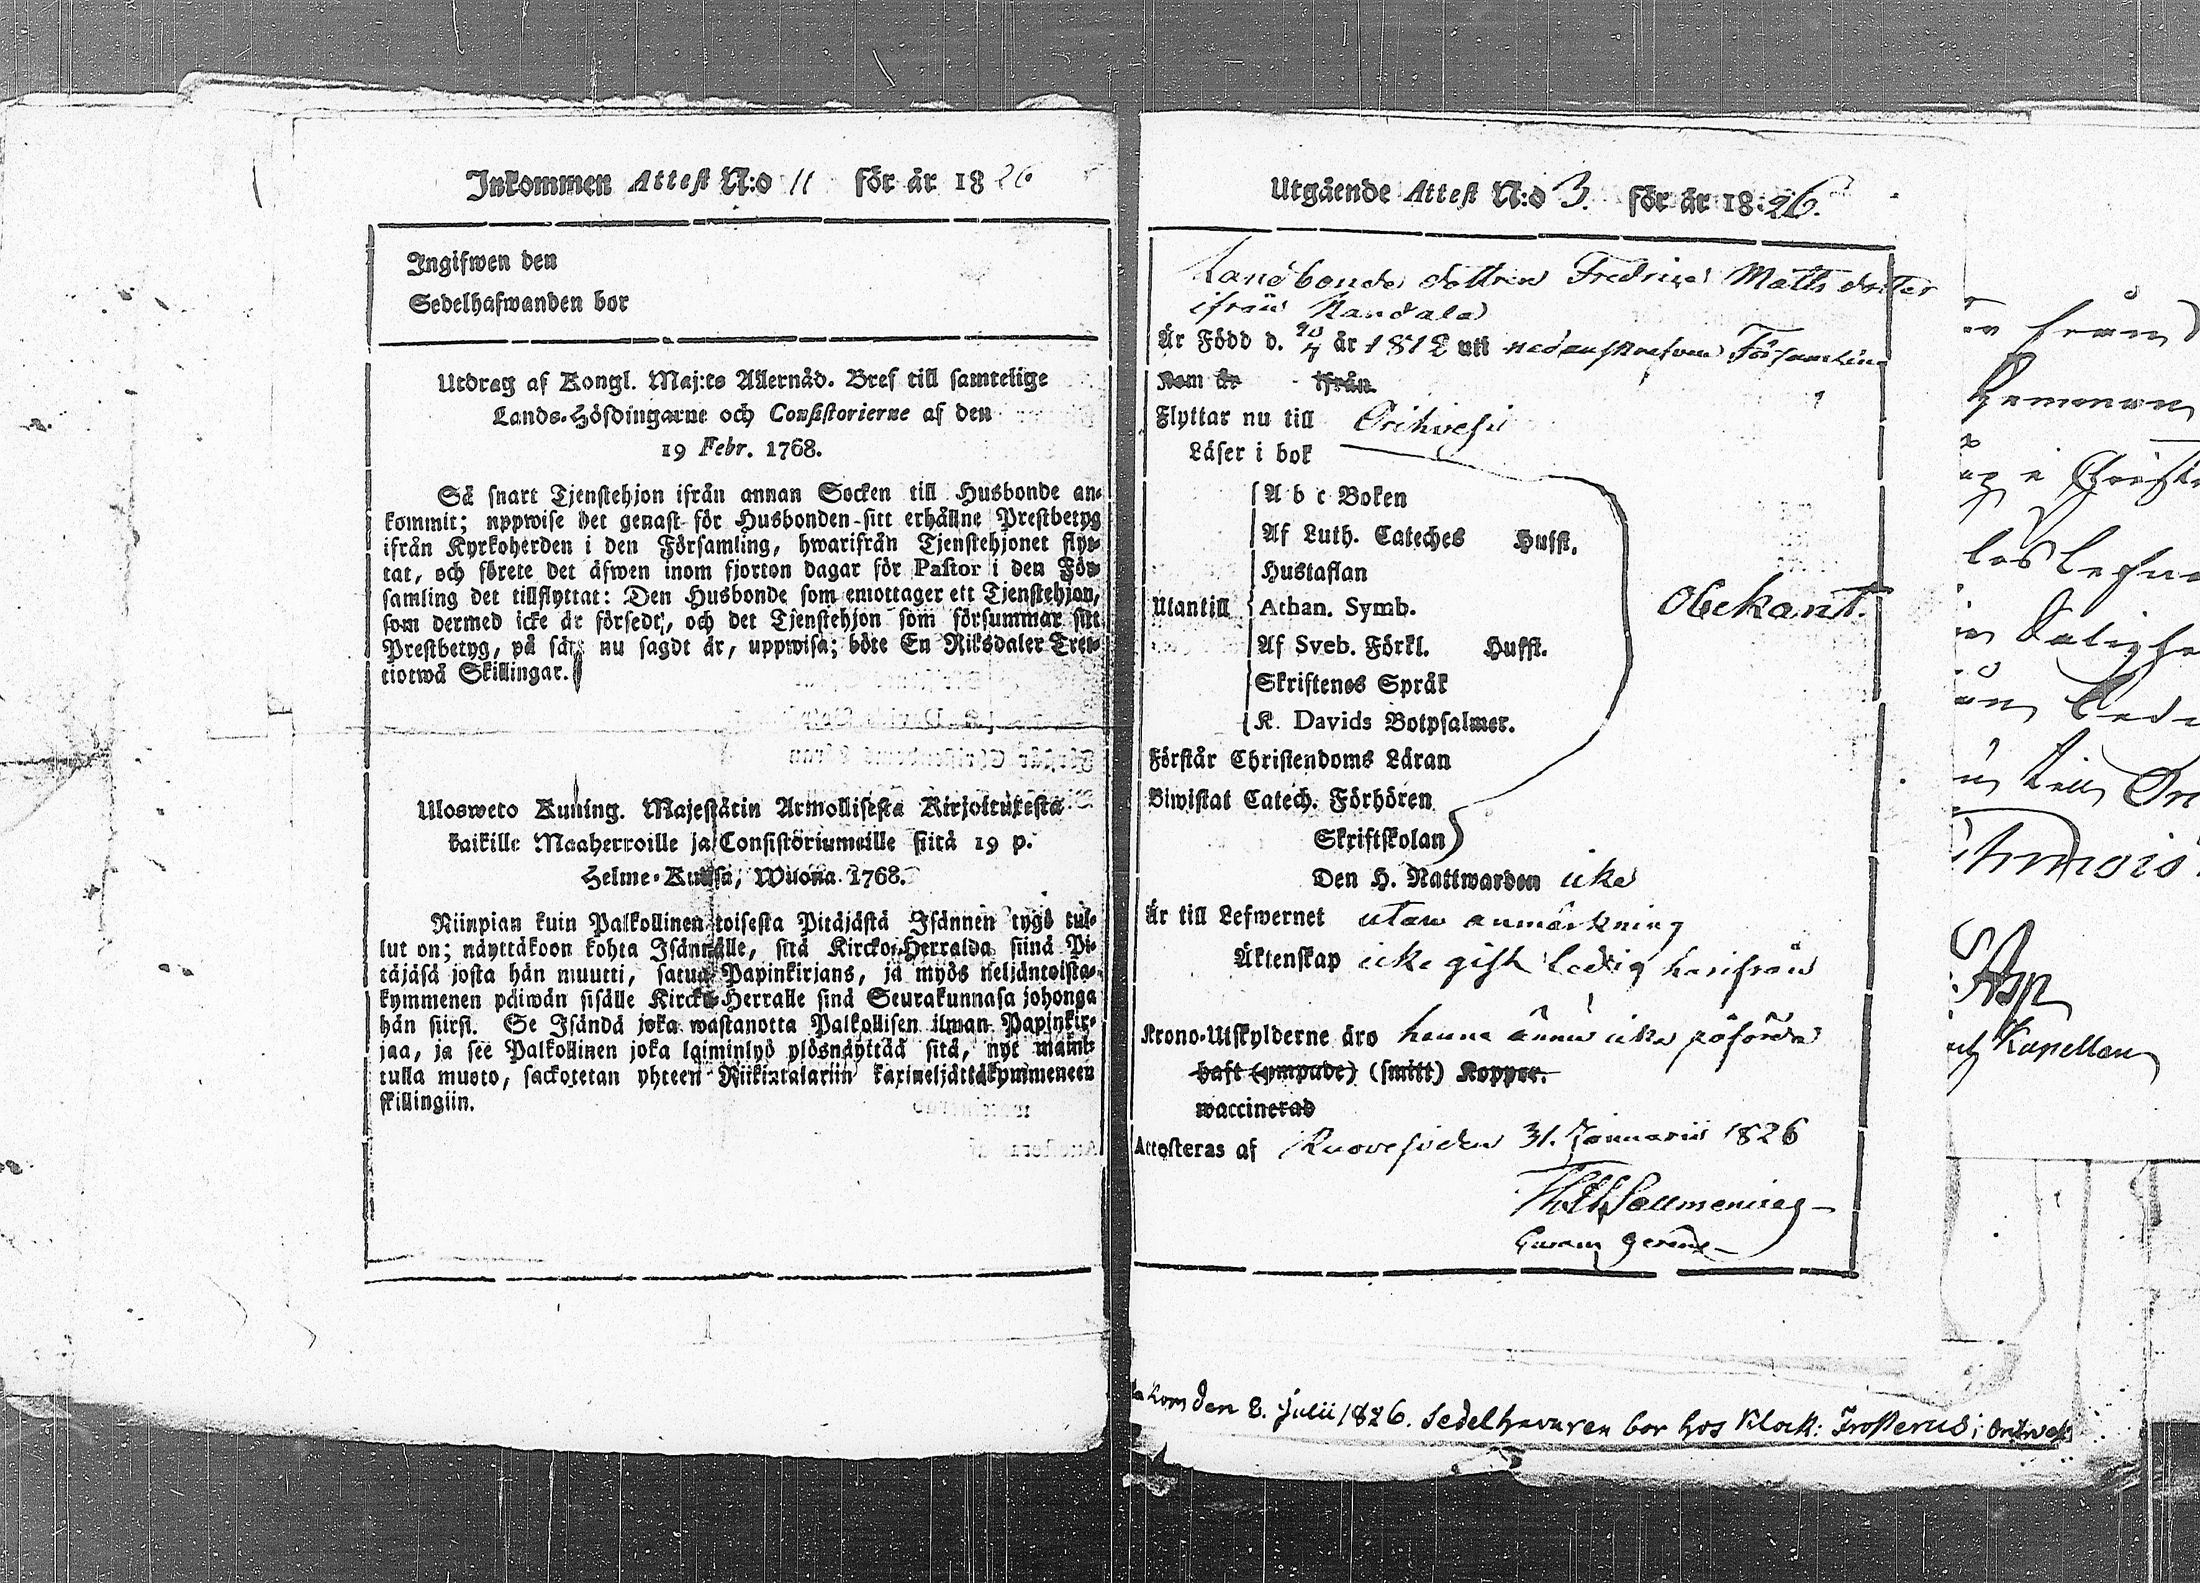 Inkommen Attest N:o 11 för år 1826
Ingifwen den
Sedelhafwanden bor
Utdrag af Kongl. Maj:ts Allernåd. Bref till samtelige
Lands-Höfdingarne och Consistorierne af den
19 Febr. 1768.
Så snart Tjenstehjon ifrån annan Socken till Husbonde an-
kommit; uppwise det genast för Husbonden sitt erhållne Prestbetyg
ifrån Kyrkoherden i den Församling, hwarifrån Tjenstehjonet flyt-
tat, och förete det äfwen inom fjorton dagar för Pastor i den För-
samling det tillflyttat: Den Husbonde som emottager ett Tjenstehjon,
som dermed icke är försedt, och det Tjenstehjon som försummar sitt
Prestbetyg, på sätt nu sagdt är, uppwisa; böte En Riksdaler Tret-
tiotwå Skillingar.
Ulosweto Kuning. Majestätin Armollisesta Kirjoituxesta
kaikille Maaherroille ja Consistöriumeille siitä 19 p.
Helme-Kuusa, Wuonna 1768.
Niinpian kuin Palkollinen toisesta Pitäjästä Isännen tygö tul-
lut on; näyttäkoon kohta Isännälle, sitä Kircko-Herralda siinä Pi-
täjäsä josta hän muutti, satua Papinkirjans, ja myös neljäntoista-
kymmenen päiwän sisälle Kircko-Herralle sinä Seurakunnasa johonga
hän siirsi. Se Isändä joka wastanotta Palkollisen ilman Papinkir-
jaa, ja see Palkollinen joka laiminlyö ylösnäyttää sitä, nyt mainit-
tulla muoto, sackotetan yhteen Riikintalariin kaxineljättäkymmeneen
skillingiin.
Utgående Attest N:o 3. för år 1826.
Landbonde dottren Fredrica Matts dotter
ifrån Kandala
Är Född d. 20/7 år 1812 uti nedanskrefven Församling
Kom år ifrån
Flyttar nu till Orihvesi
Läser i bok
A b c Boken
Af Luth. Cateches Hufst.
Hustaflan
Utantill Athan. Symb.
Af Sveb. Förkl. Hufst.
Skriftenes Språk
K. Davids Botpsalmer.
Obekant.
Förstår Christendoms Läran
Biwistat Catech. Förhören
Skriftskolan
Den H. Nattwarden icke
Är till Lefwernet utan anmärkning
Äktenskap icke gift ledig härifrån
Krono-Utskylderne äro henne ännu icke påförda
haft (ympade) (smitt) Koppor.
waccinerad
Attesteras af Ruovesi den 31. Januarii 1826
Kapellan
kom den 8. Julii 1826. Sedelhavaren bor hos Klock: Troßerus i Orihvesi